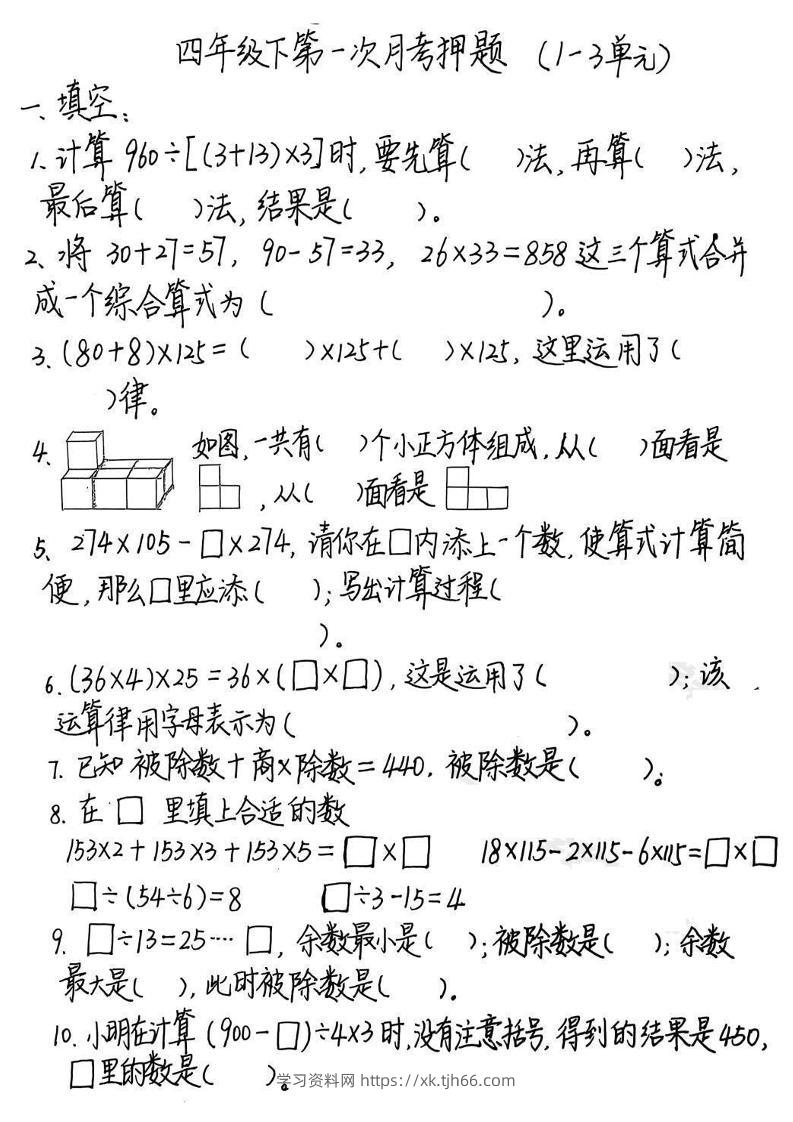 四年级下第一次月考押题 (1-3单元)
一、填空:
1、计算 960÷[(3+13)×3]时,要先算(  )法,再算(  )法,
最后算(  )法,结果是(  )。
2、将 30+27=57, 90-57=33, 26×33=858 这三个算式合并
成一个综合算式为(  )。
3、(80+8)×125=(  )×125+(  )×125,这里运用了(
)律。
4、如图,一共有(  )个小正方体组成,从(  )面看是
,从(  )面看是
5、274×105-□×274,请你在□内添上一个数,使算式计算简
便,那么□里应添(  );写出计算过程(
)。
6.(36×4)×25=36×(□×□),这是运用了(  );该
运算律用字母表示为(  )。
7.已知被除数+商×除数=440,被除数是(  )。
8.在 □ 里填上合适的数
153×2+153×3+153×5=□×□  18×115-2×115-6×115=□×□
□÷(54÷6)=8  □÷3-15=4
9. □÷13=25····□,余数最小是(  );被除数是(  );余数
最大是(  ),此时被除数是(  )。
10.小明在计算 (900-□)÷4×3时,没有注意括号,得到的结果是450,
□里的数是(  )。
学习资料网 https://xk.tjh66.com